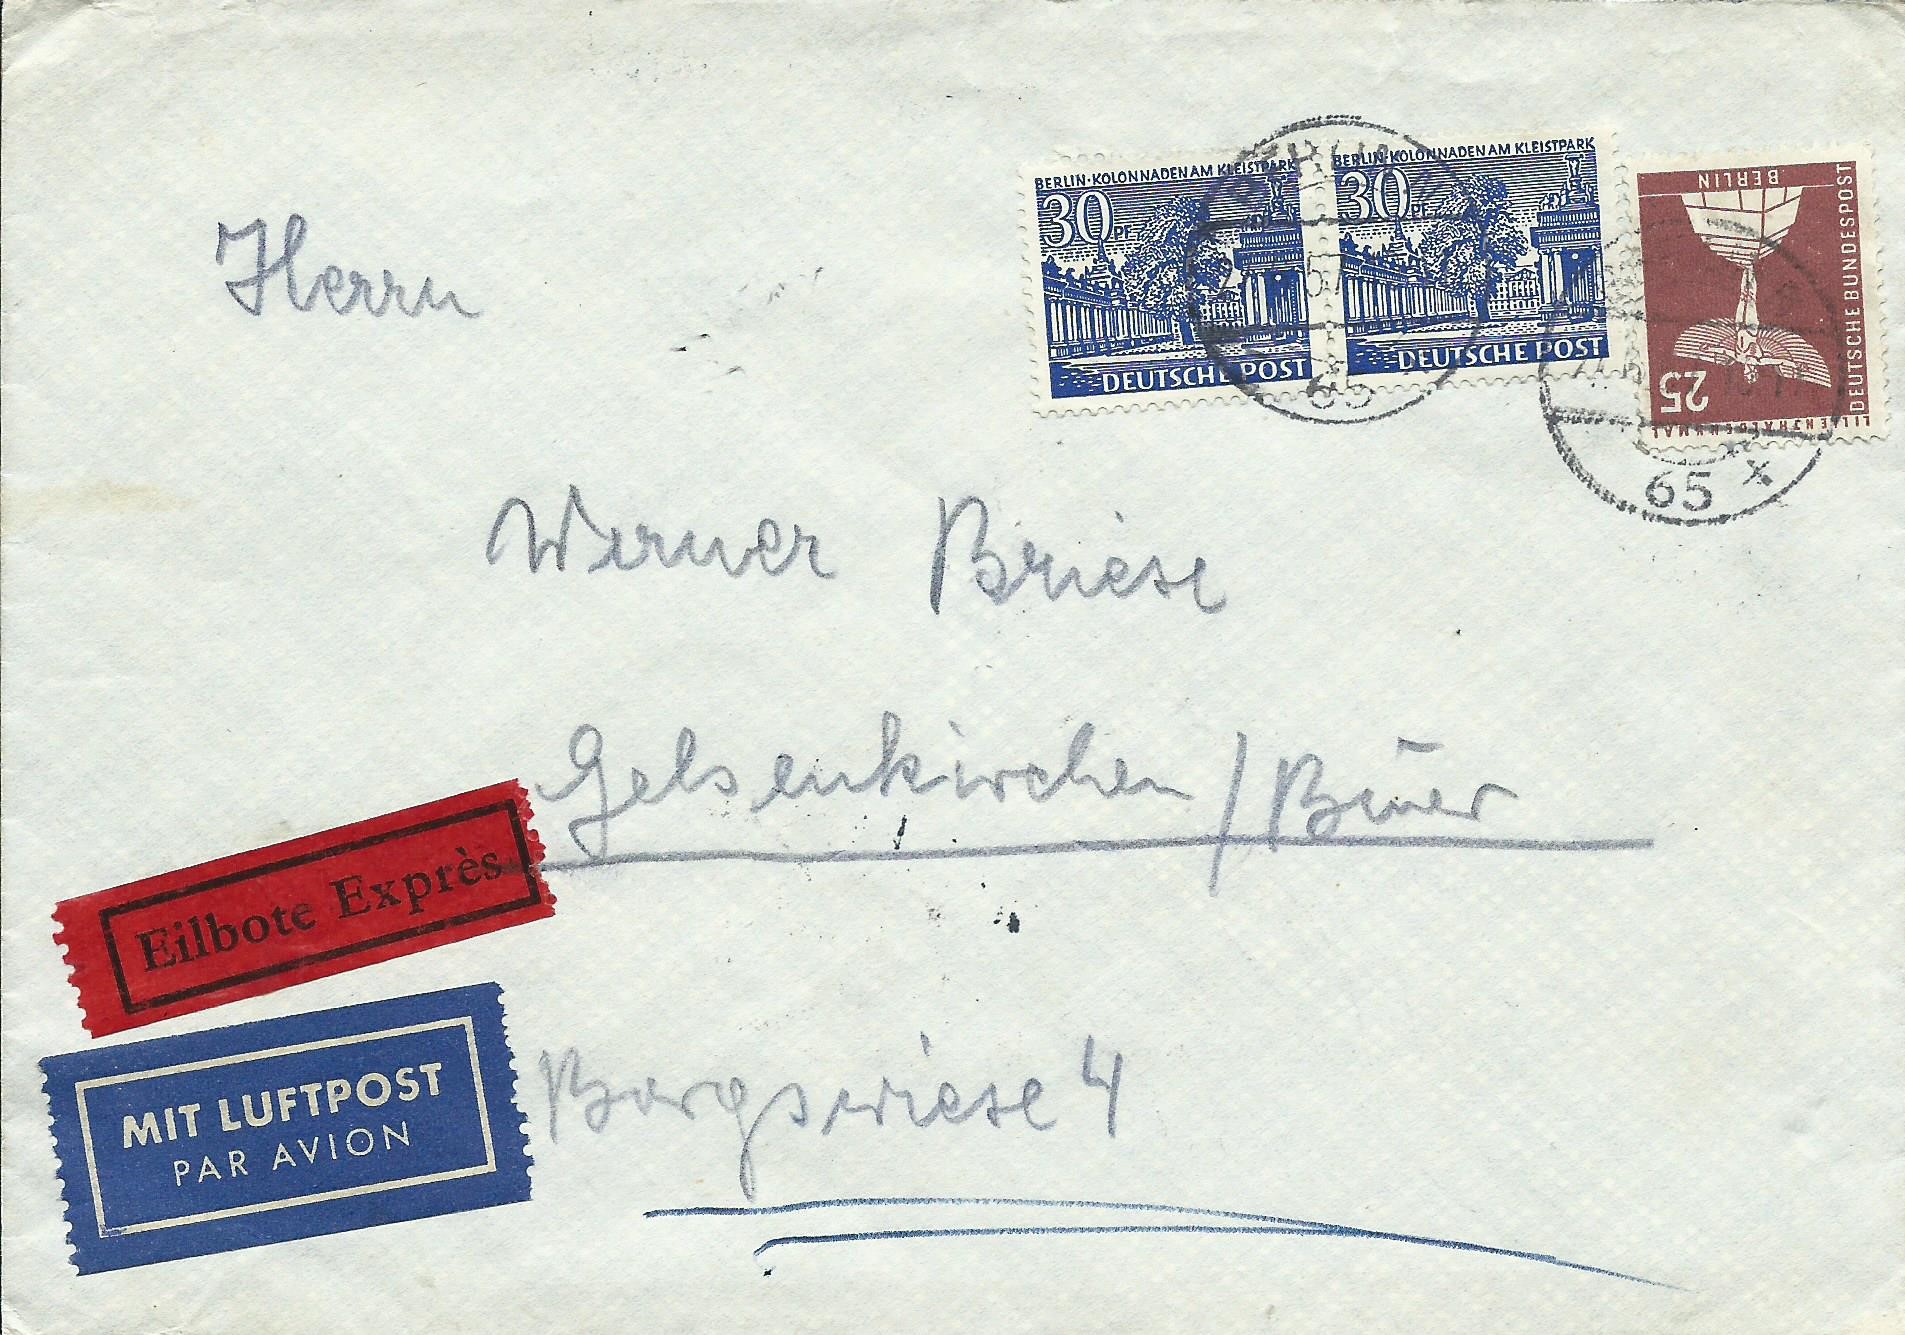 BERLIN·KOLONNADEN AM KLEISTPARK
30 PF
DEUTSCHE POST
BERLIN·KOLONNADEN AM KLEISTPARK
30 PF
DEUTSCHE POST
BERLIN
DEUTSCHE BUNDESPOST
25
LILIENTHALDENKMAL
BERLIN
57
65
65 x
Herrn
Werner Briese
Gelsenkirchen / Büer
Eilbote Exprès
MIT LUFTPOST
PAR AVION
Borgswiese 4